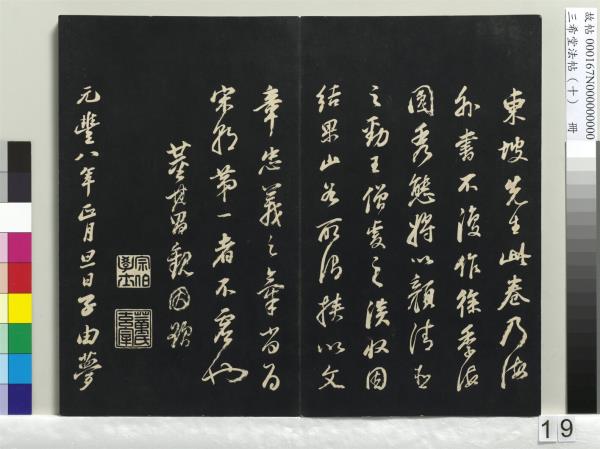 故帖 000167N000000000
三希堂法帖(十) 冊
東坡先生此卷乃海
外書不復作徐季海
圓秀態將以顏清臣
之勁王僧虔之淡收因
結果山谷所謂挾以文
章忠義之氣當為
宋朝第一者不虛也
董其昌觀因題
宗伯學士
董氏玄宰
元豐八年正月旦日子由夢
19